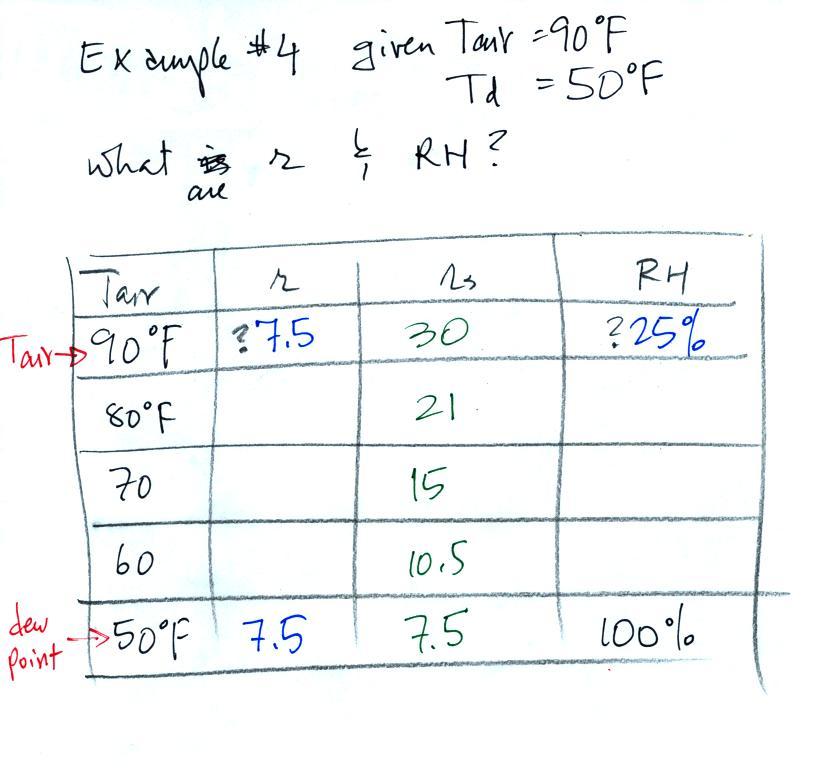 Example #4 given Tair = 90°F
Td = 50°F
what are r & RH?
Tair r rs RH
Tair → 90°F ? 7.5 30 ? 25%
80°F 21
70 15
60 10.5
dew point → 50°F 7.5 7.5 100%